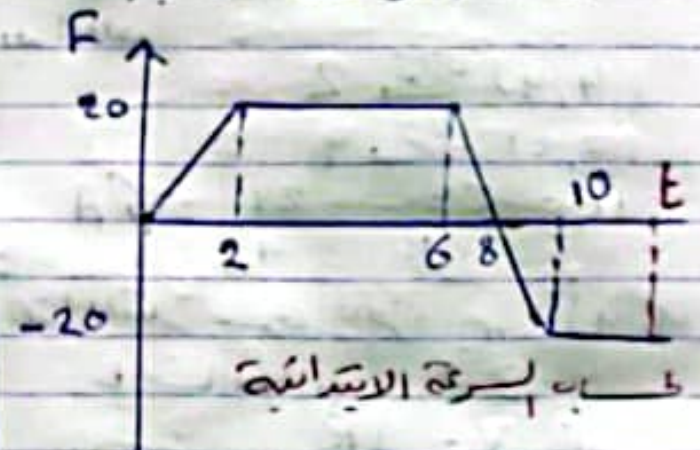 F
20
10 t
2 6 8
-20
لحساب السرعة الابتدائية